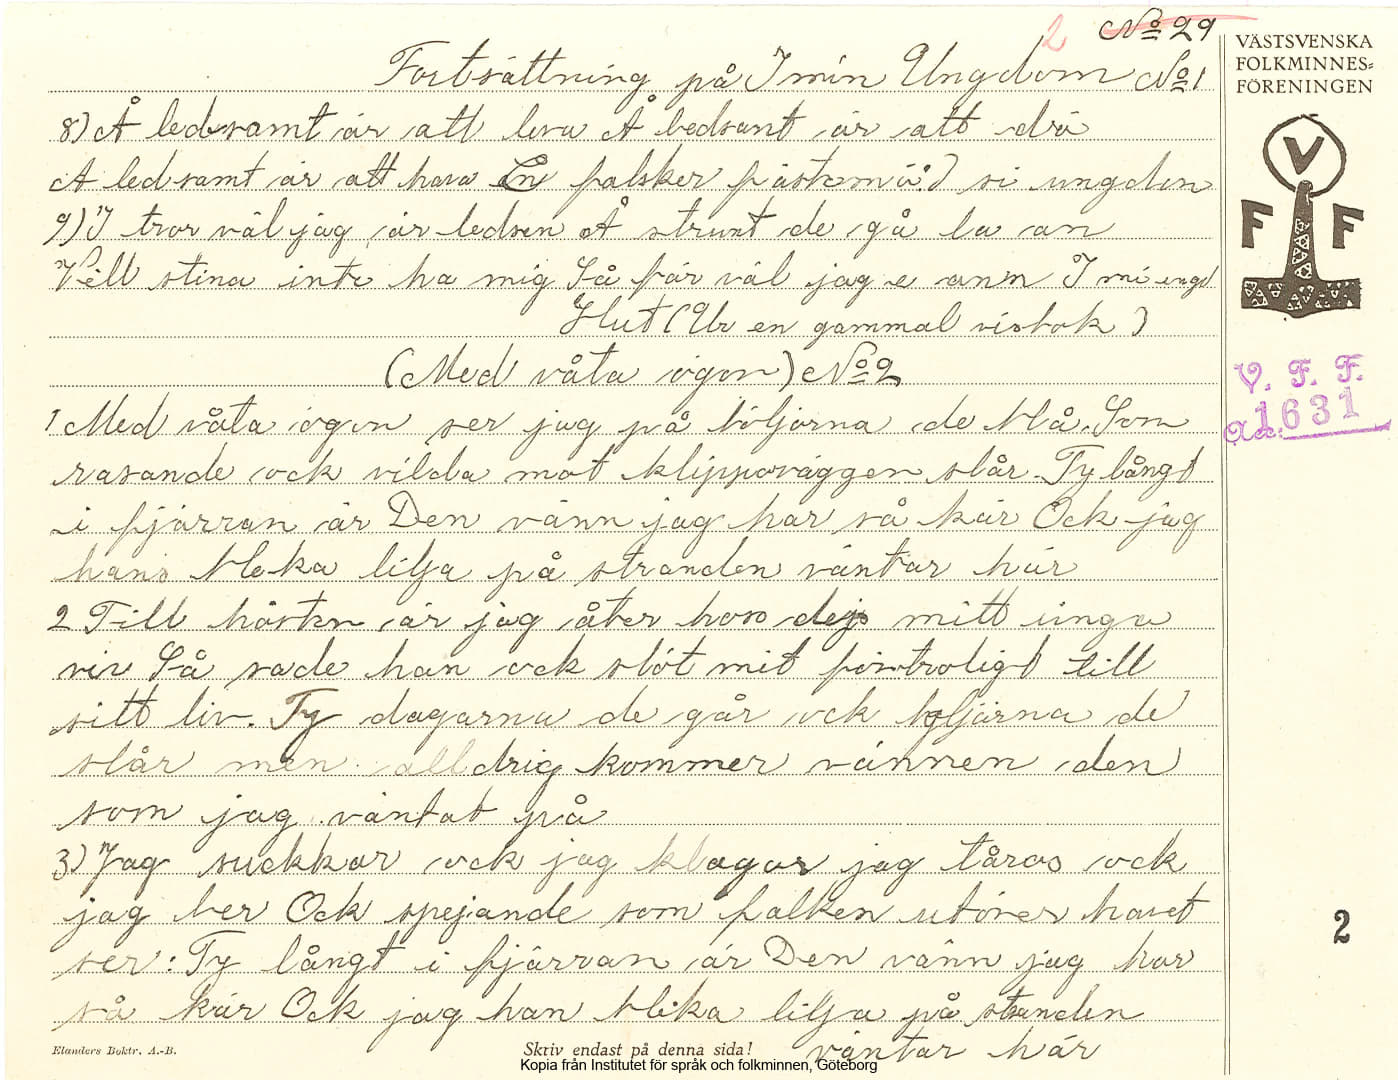 2 No 29
Fortsättning på I min Ungdom No 1
8) Å ledsamt är att leva Å ledsamt är att drö
A ledsamt är att hava En falsker fästemö) si ungden
9) I tror väl jag är ledsen Å strunt de gå la an
Vill stina inte ha mig Så får väl jag e ann I mi ungd
Slut (Ur en gammal visbok)
(Med våta ögon) No 2
1 Med våta ögon ser jag på böljorna de blå. Som
rasande ock vilda mot klippoväggen slår. Ty långt
i fjärran är Den vänn jag har så kär Ock jag
hans bleka lilja på stranden väntar här
2 Till hösten är jag åter hos dej mitt unga
viv Så sade han ock slöt mit förtroligt till
sitt liv. Ty dagarna de går ock böljärna de
slår men alldrig kommer vännen den
som jag väntat på
3) Jag suckkar ock jag klagar jag tåras ock
jag ber Ock spejande som falken utöver havet
ser: Ty långt i fjärran är Den vänn jag har
så kär Ock jag han blika lilja på stranden
väntar här
Elanders Boktr. A.-B.
Skriv endast på denna sida!
Kopia från Institutet för språk och folkminnen, Göteborg
VÄSTSVENSKA
FOLKMINNES-
FÖRENINGEN
V
F F
V. F. F.
acc. 1631
2